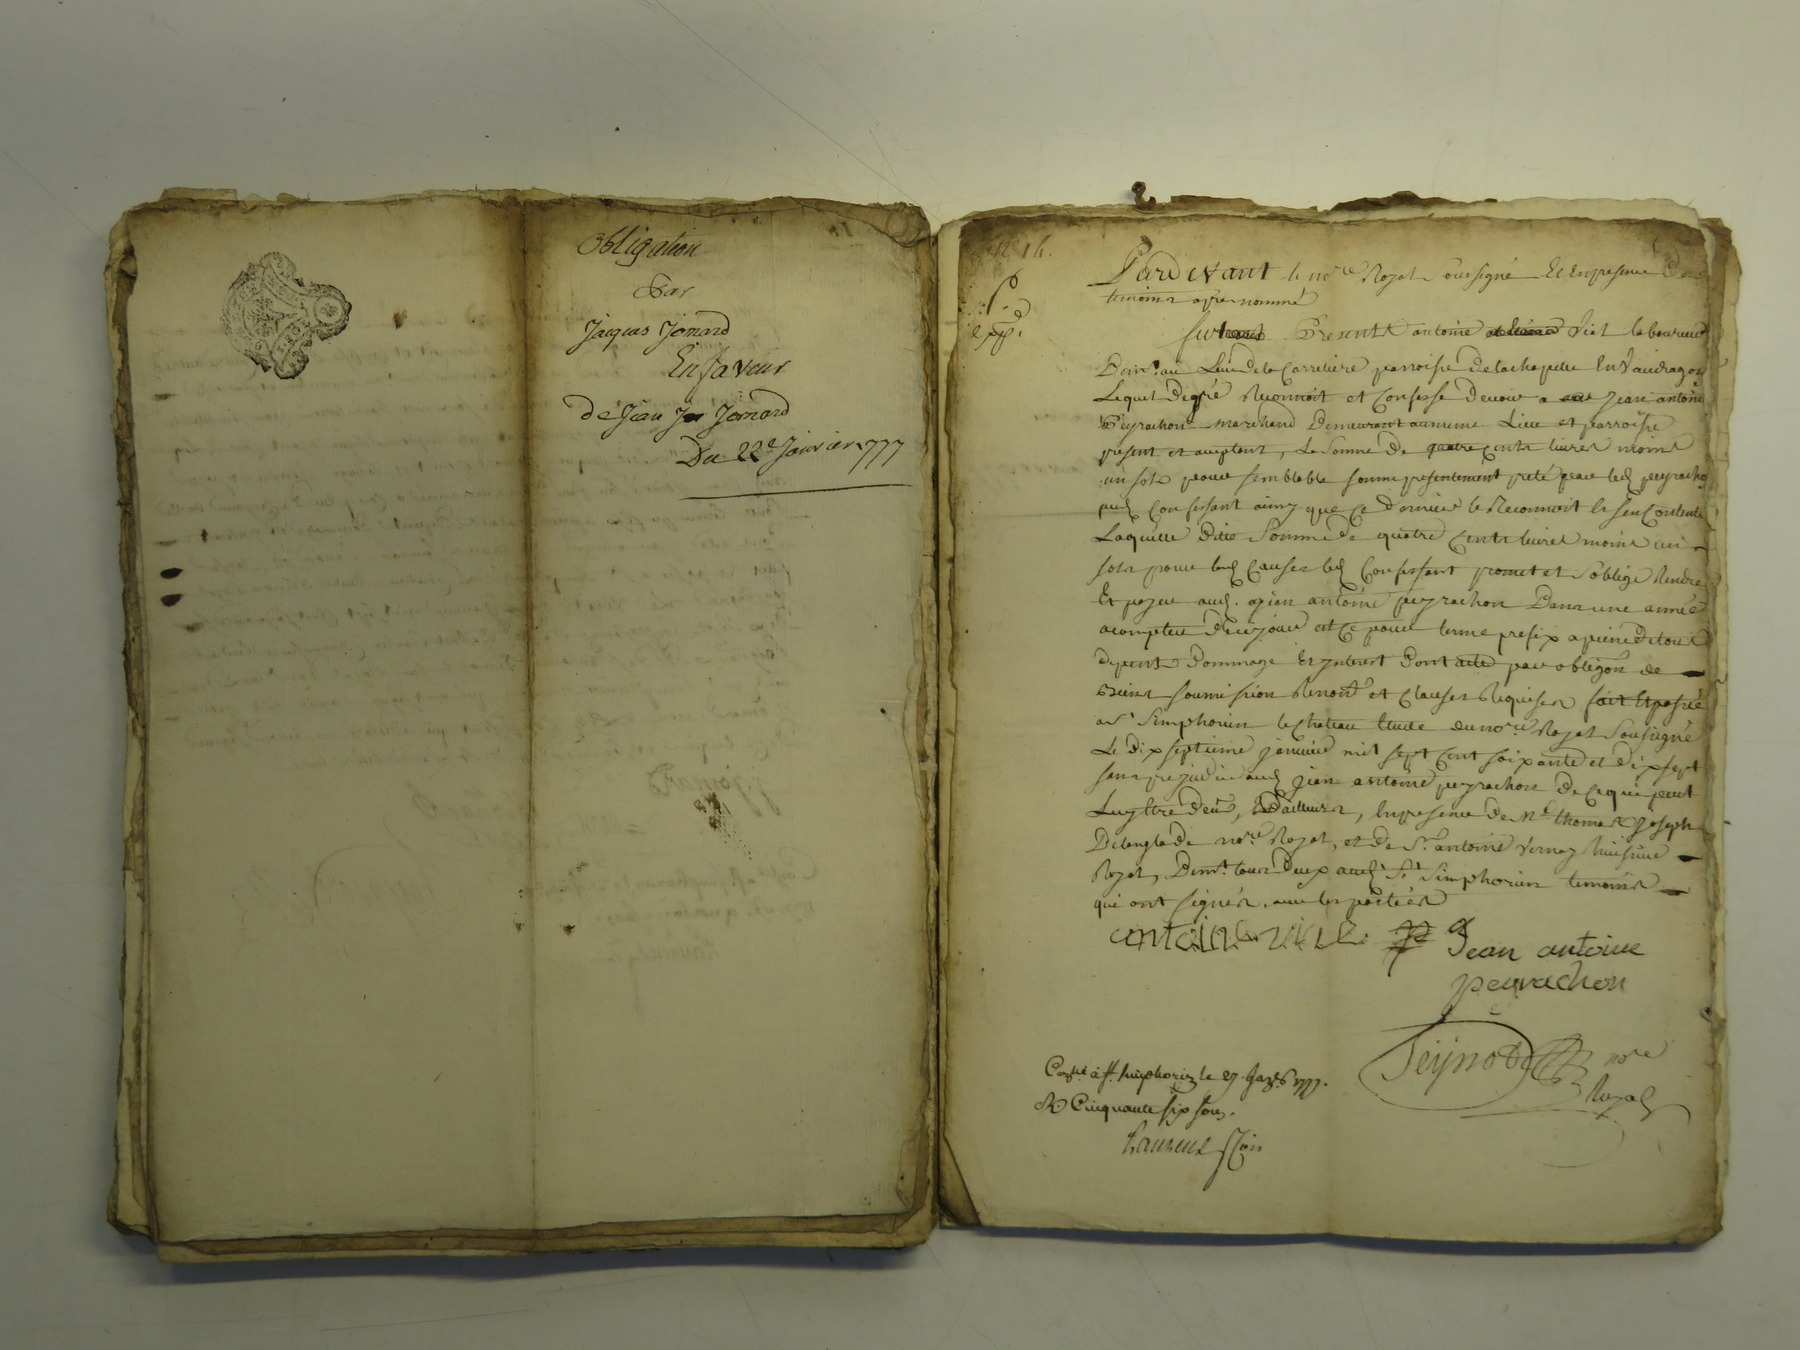 Obligation
Par
Jacques Jomard
En faveur
de Jean Jomard
Du 22e Janvier 1777
No 14.
Pardevant le nore Royal soussigné Et En presence Des
temoins apres nommé
fut Present antoine Viol laboureur
Demt au Lieu de la Carreliere parroisse De la chapelle En Vaudragon
Lequel De gré Reconnoit et Confesse devoir a Jean antoine
Peyrachon marchand Demeurant au meme Lieu et parroisse
present et acceptant, La Somme De quatre cents livres moins
un sols pour semblable somme presentement preté par led peyrachon
aud Confessant ainsy que Ce Dernier le Reconnoit Et s'en Contente
Laquelle Ditte Somme De quatre Cents livres moins un
sols pour lesd Causes led Confessant promet et S'oblige Rendre
Et payer aud. jean antoine peyrachon Dans une année
a compter De ce jour et Ce pour terme prefix a peine De tous
depents Dommage Et jnterest Dont acte par obligon de
Biens soumission Renonc et Clauses Requises fait Et passé
a St Simphorien le Chateau Etude du nore Royal Soussigné
Le Dix septieme janvier mil sept cent soixante et dix sept
sans prejudice aud jean antoine peyrachon De Ce qui peut
Luy Etre Deû, D'ailleurs, En presence De Me thomas joseph
Delanglade nore Royal, et de Sr antoine Vernay huissier
Royal, Demt tous Deux aud St Simphorien temoins
qui ont signés avec les parties
antoine viol Jean antoine
peyrachon
nore
Royal
Conlé à St Simphorien le 27 Janr 1777.
R Cinquante six sous.